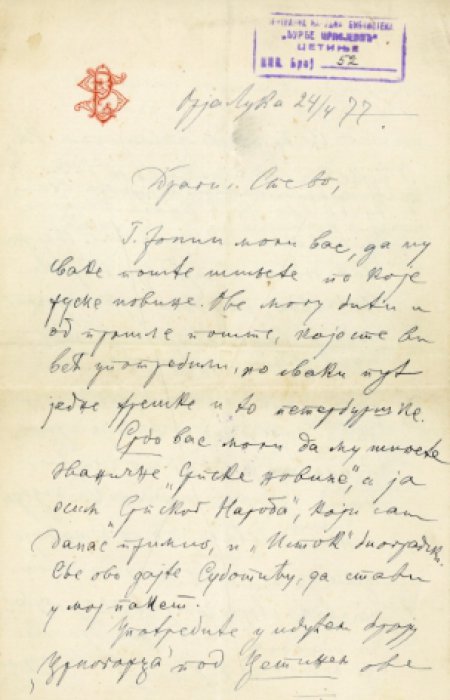 ЦЕНТРАЛНА НАРОДНА БИБЛИОТЕКА
„ЂУРЂЕ ЦРНОЈЕВИЋ"
ЦЕТИЊЕ
ИНВ. Број 52
Орја Лука 24/4 77
Драги Стево,
моли вас, да му
сваке поште шиљете по које
руске новине. Ове могу бити и
од прошле поште, које сте ви
већ употребили, но сваки пут
једне и то петербуршке.
Срђо вас моли да му шиљете
званичне „Српске новине", а ја
осим „Српског Народа", који сам
данас примио, и „Исток" биоградски.
Све ово дајте Суботићу, да стави
у мој пакет.
Употребите у идућем броју
„Црногорца" под Цетињем ове